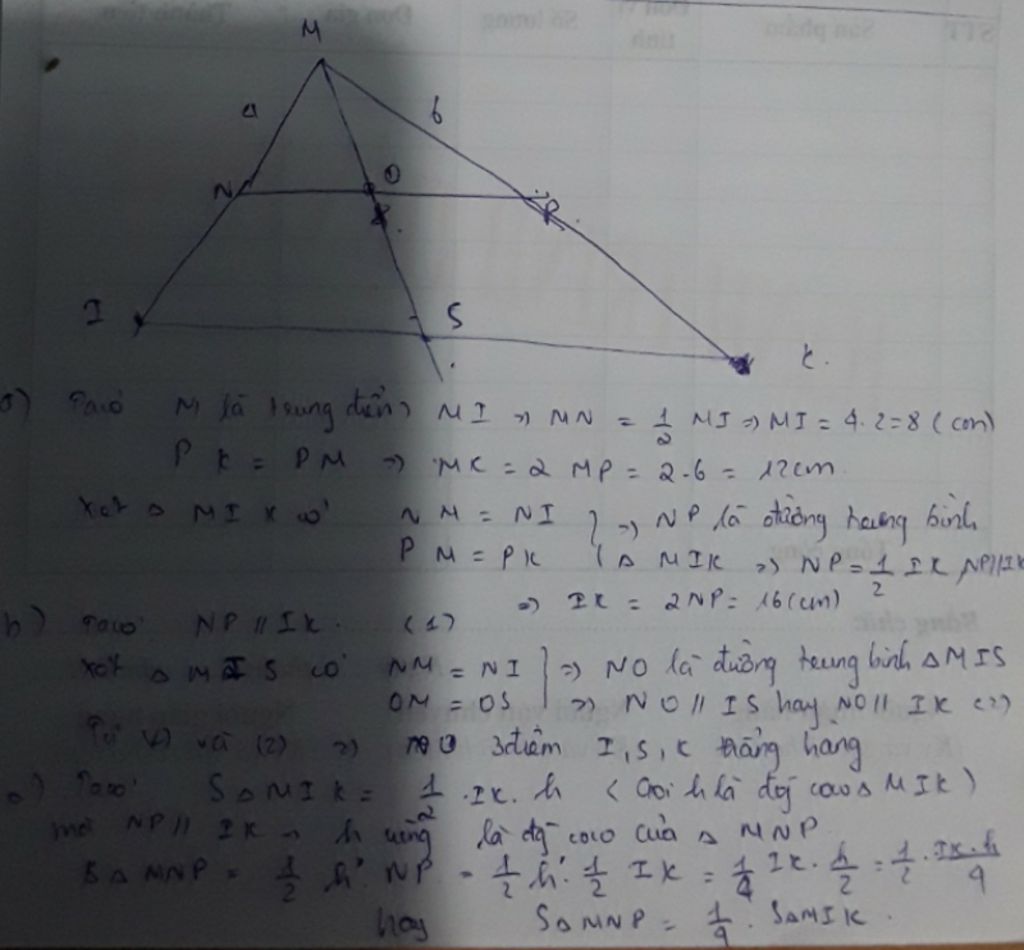 M
a
b
N
O
P
I
S
K.
a) Ta có M là trung điểm MI => MN = 1/2 MI => MI = 4.2=8 (cm)
PK = PM => MK = 2 MP = 2.6 = 12cm
Xét Δ MIK có NM = NI } => NP là đường trung bình
PM = PK Δ MIK => NP = 1/2 IK, NP//IK
=> IK = 2NP = 16(cm)
b) Ta có NP // IK. (1)
Xét Δ MIS có NM = NI } => NO là đường trung bình ΔMIS
OM = OS => NO // IS hay NO // IK (2)
Từ (1) và (2) => 3 điểm I, S, K thẳng hàng
c) Ta có SΔMIK = 1/2 .IK. h (Gọi h là độ cao Δ MIK)
mà NP // IK => h cũng là độ cao của Δ MNP
SΔMNP = 1/2 h'. NP = 1/2 h'. 1/2 IK = 1/4 IK. h/2 = 1/2 . IK.h/4
hay SΔMNP = 1/4 . SΔMIK.